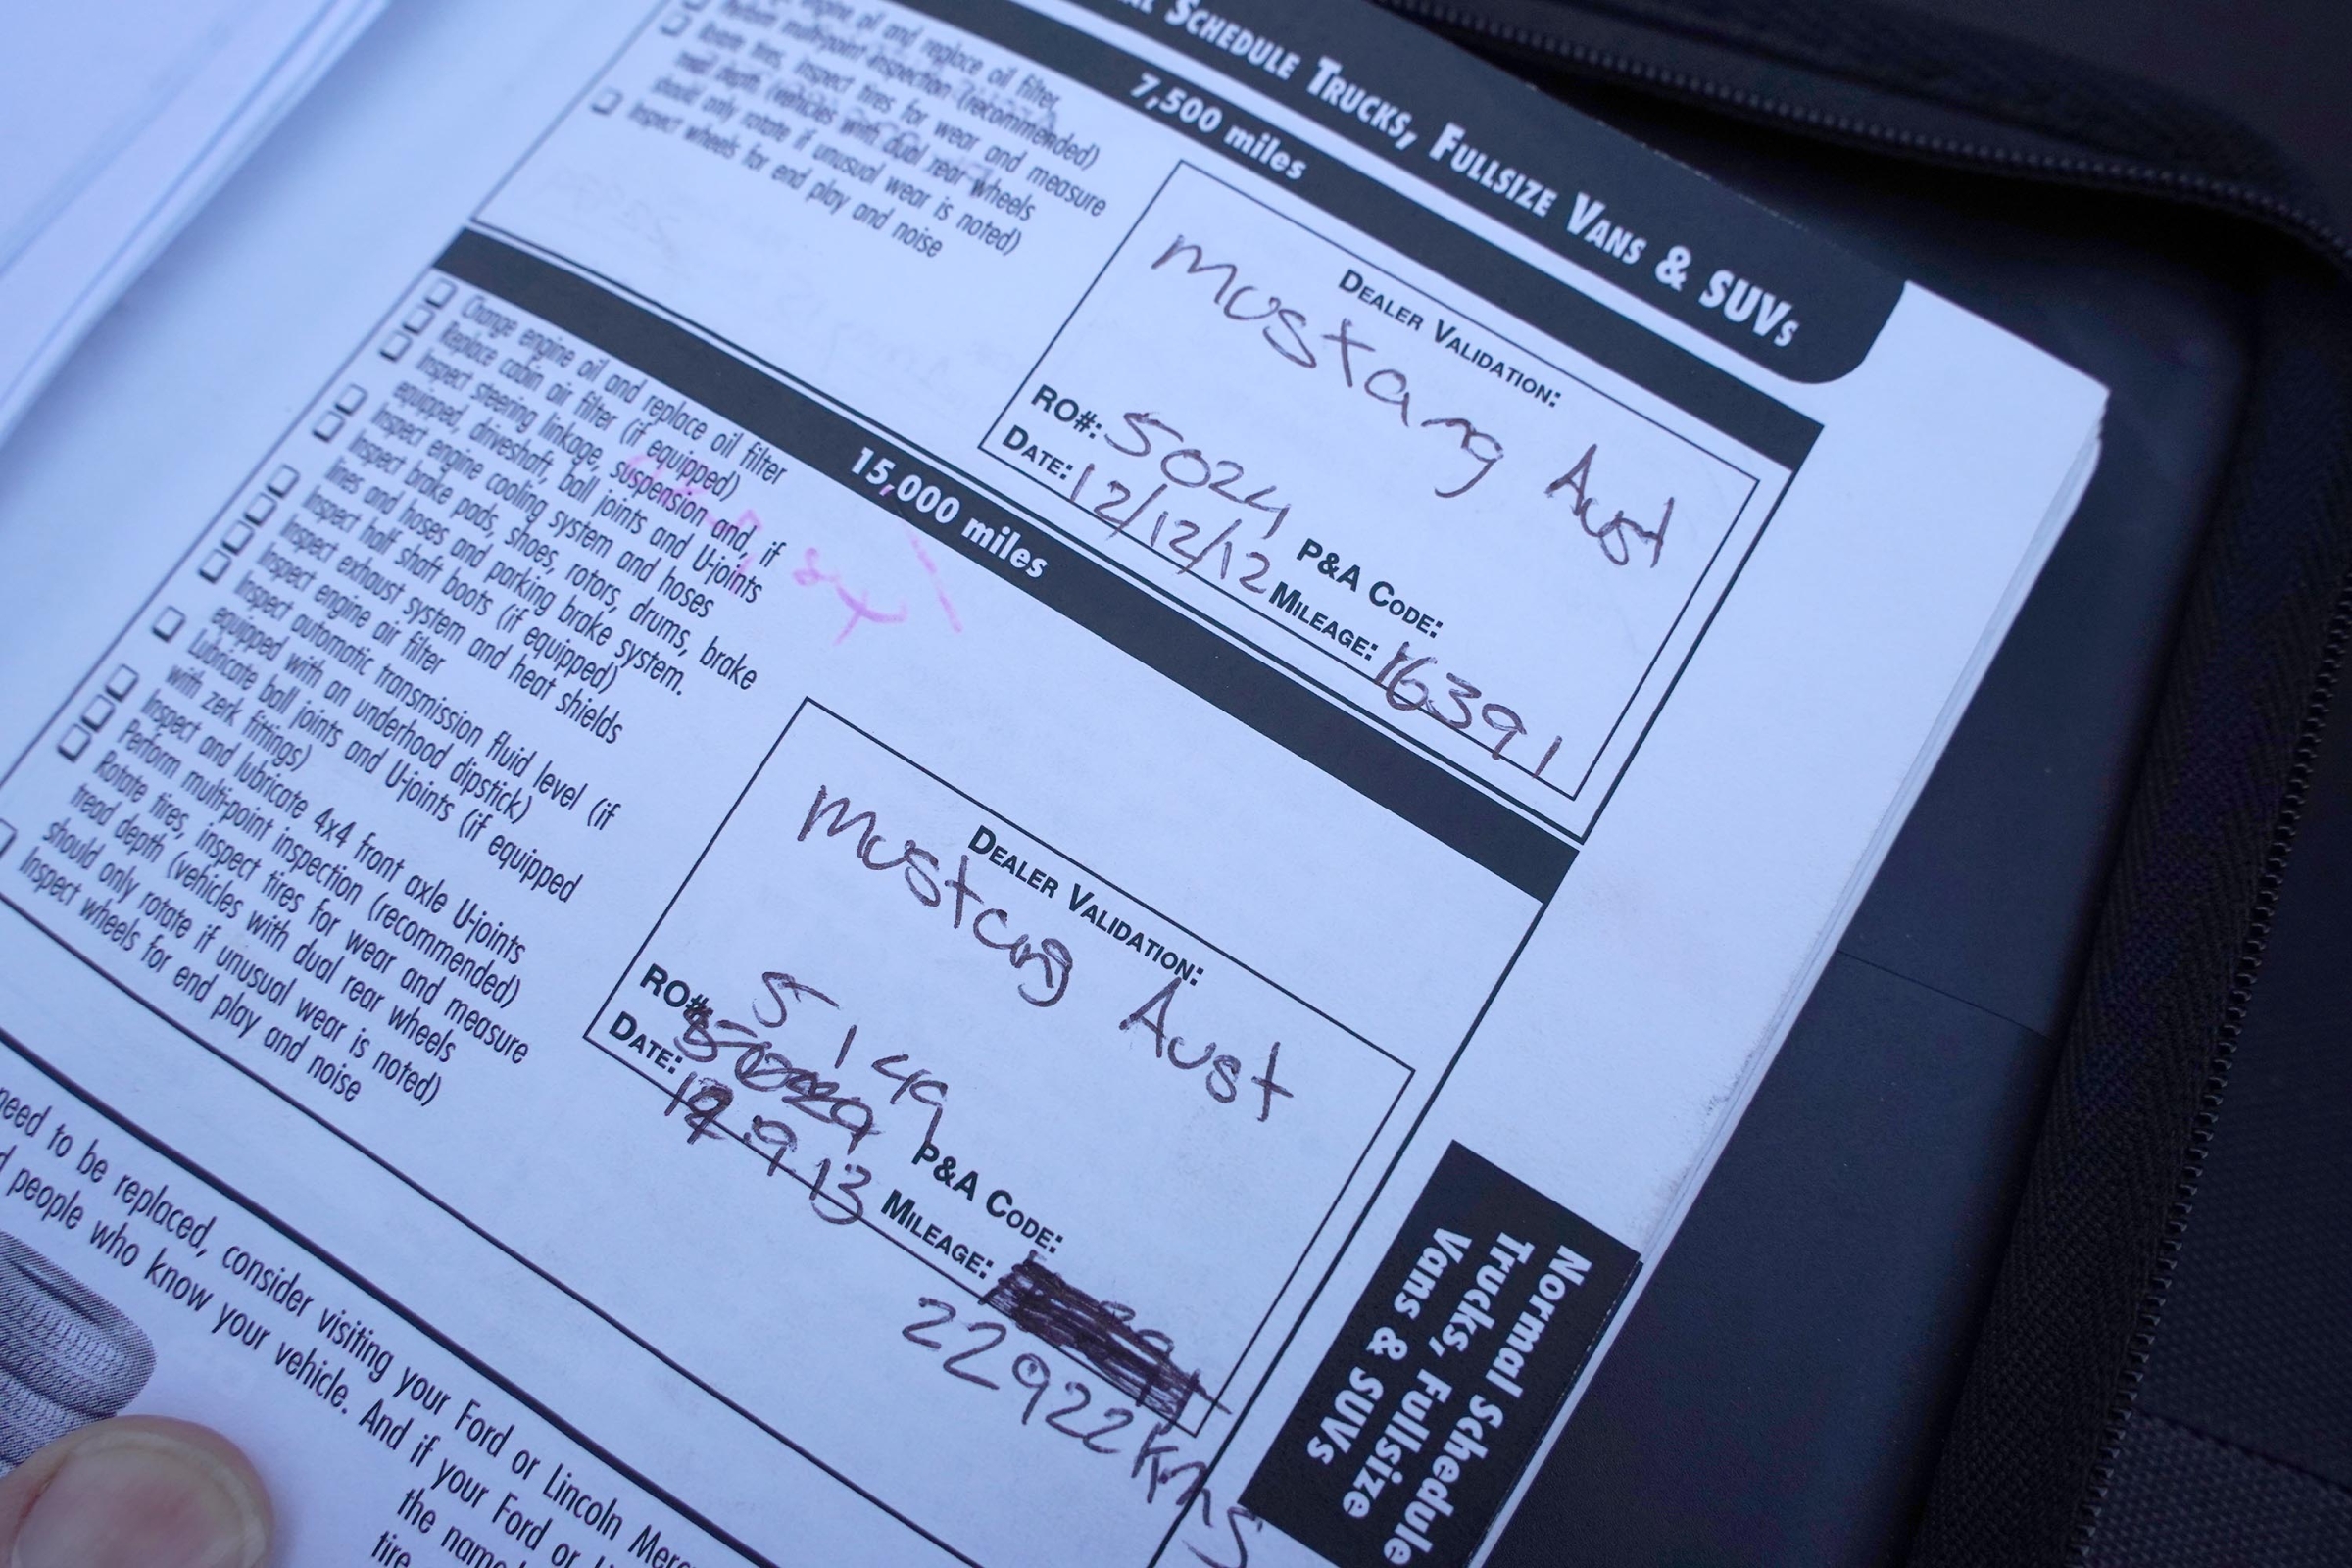 SCHEDULE TRUCKS, FULLSIZE VANS & SUVS
7,500 miles
engine oil and replace oil filter
Perform multi-point inspection (recommended)
Rotate tires, inspect tires for wear and measure
tread depth (vehicles with dual rear wheels
should only rotate if unusual wear is noted)
Inspect wheels for end play and noise
DEALER VALIDATION:
Mustang Aust
RO#: 5024 P&A CODE:
DATE: 12/12/12 MILEAGE: 16391
15,000 miles
Change engine oil and replace oil filter
Replace cabin air filter (if equipped)
Inspect steering linkage, suspension and, if
equipped, driveshaft, ball joints and U-joints
Inspect engine cooling system and hoses
Inspect brake pads, shoes, rotors, drums, brake
lines and hoses and parking brake system.
Inspect half shaft boots (if equipped)
Inspect exhaust system and heat shields
Inspect engine air filter
Inspect automatic transmission fluid level (if
equipped with an underhood dipstick)
Lubricate ball joints and U-joints (if equipped
with zerk fittings)
Inspect and lubricate 4x4 front axle U-joints
Perform multi-point inspection (recommended)
Rotate tires, inspect tires for wear and measure
tread depth (vehicles with dual rear wheels
should only rotate if unusual wear is noted)
Inspect wheels for end play and noise
DEALER VALIDATION:
Mustang Aust
5149
RO#: P&A CODE:
DATE: 9 13 MILEAGE:
22922 kms
need to be replaced, consider visiting your Ford or Lincoln
people who know your vehicle. And if your Ford or
the
tire
Normal Schedule
Trucks, Fullsize
Vans & SUVs